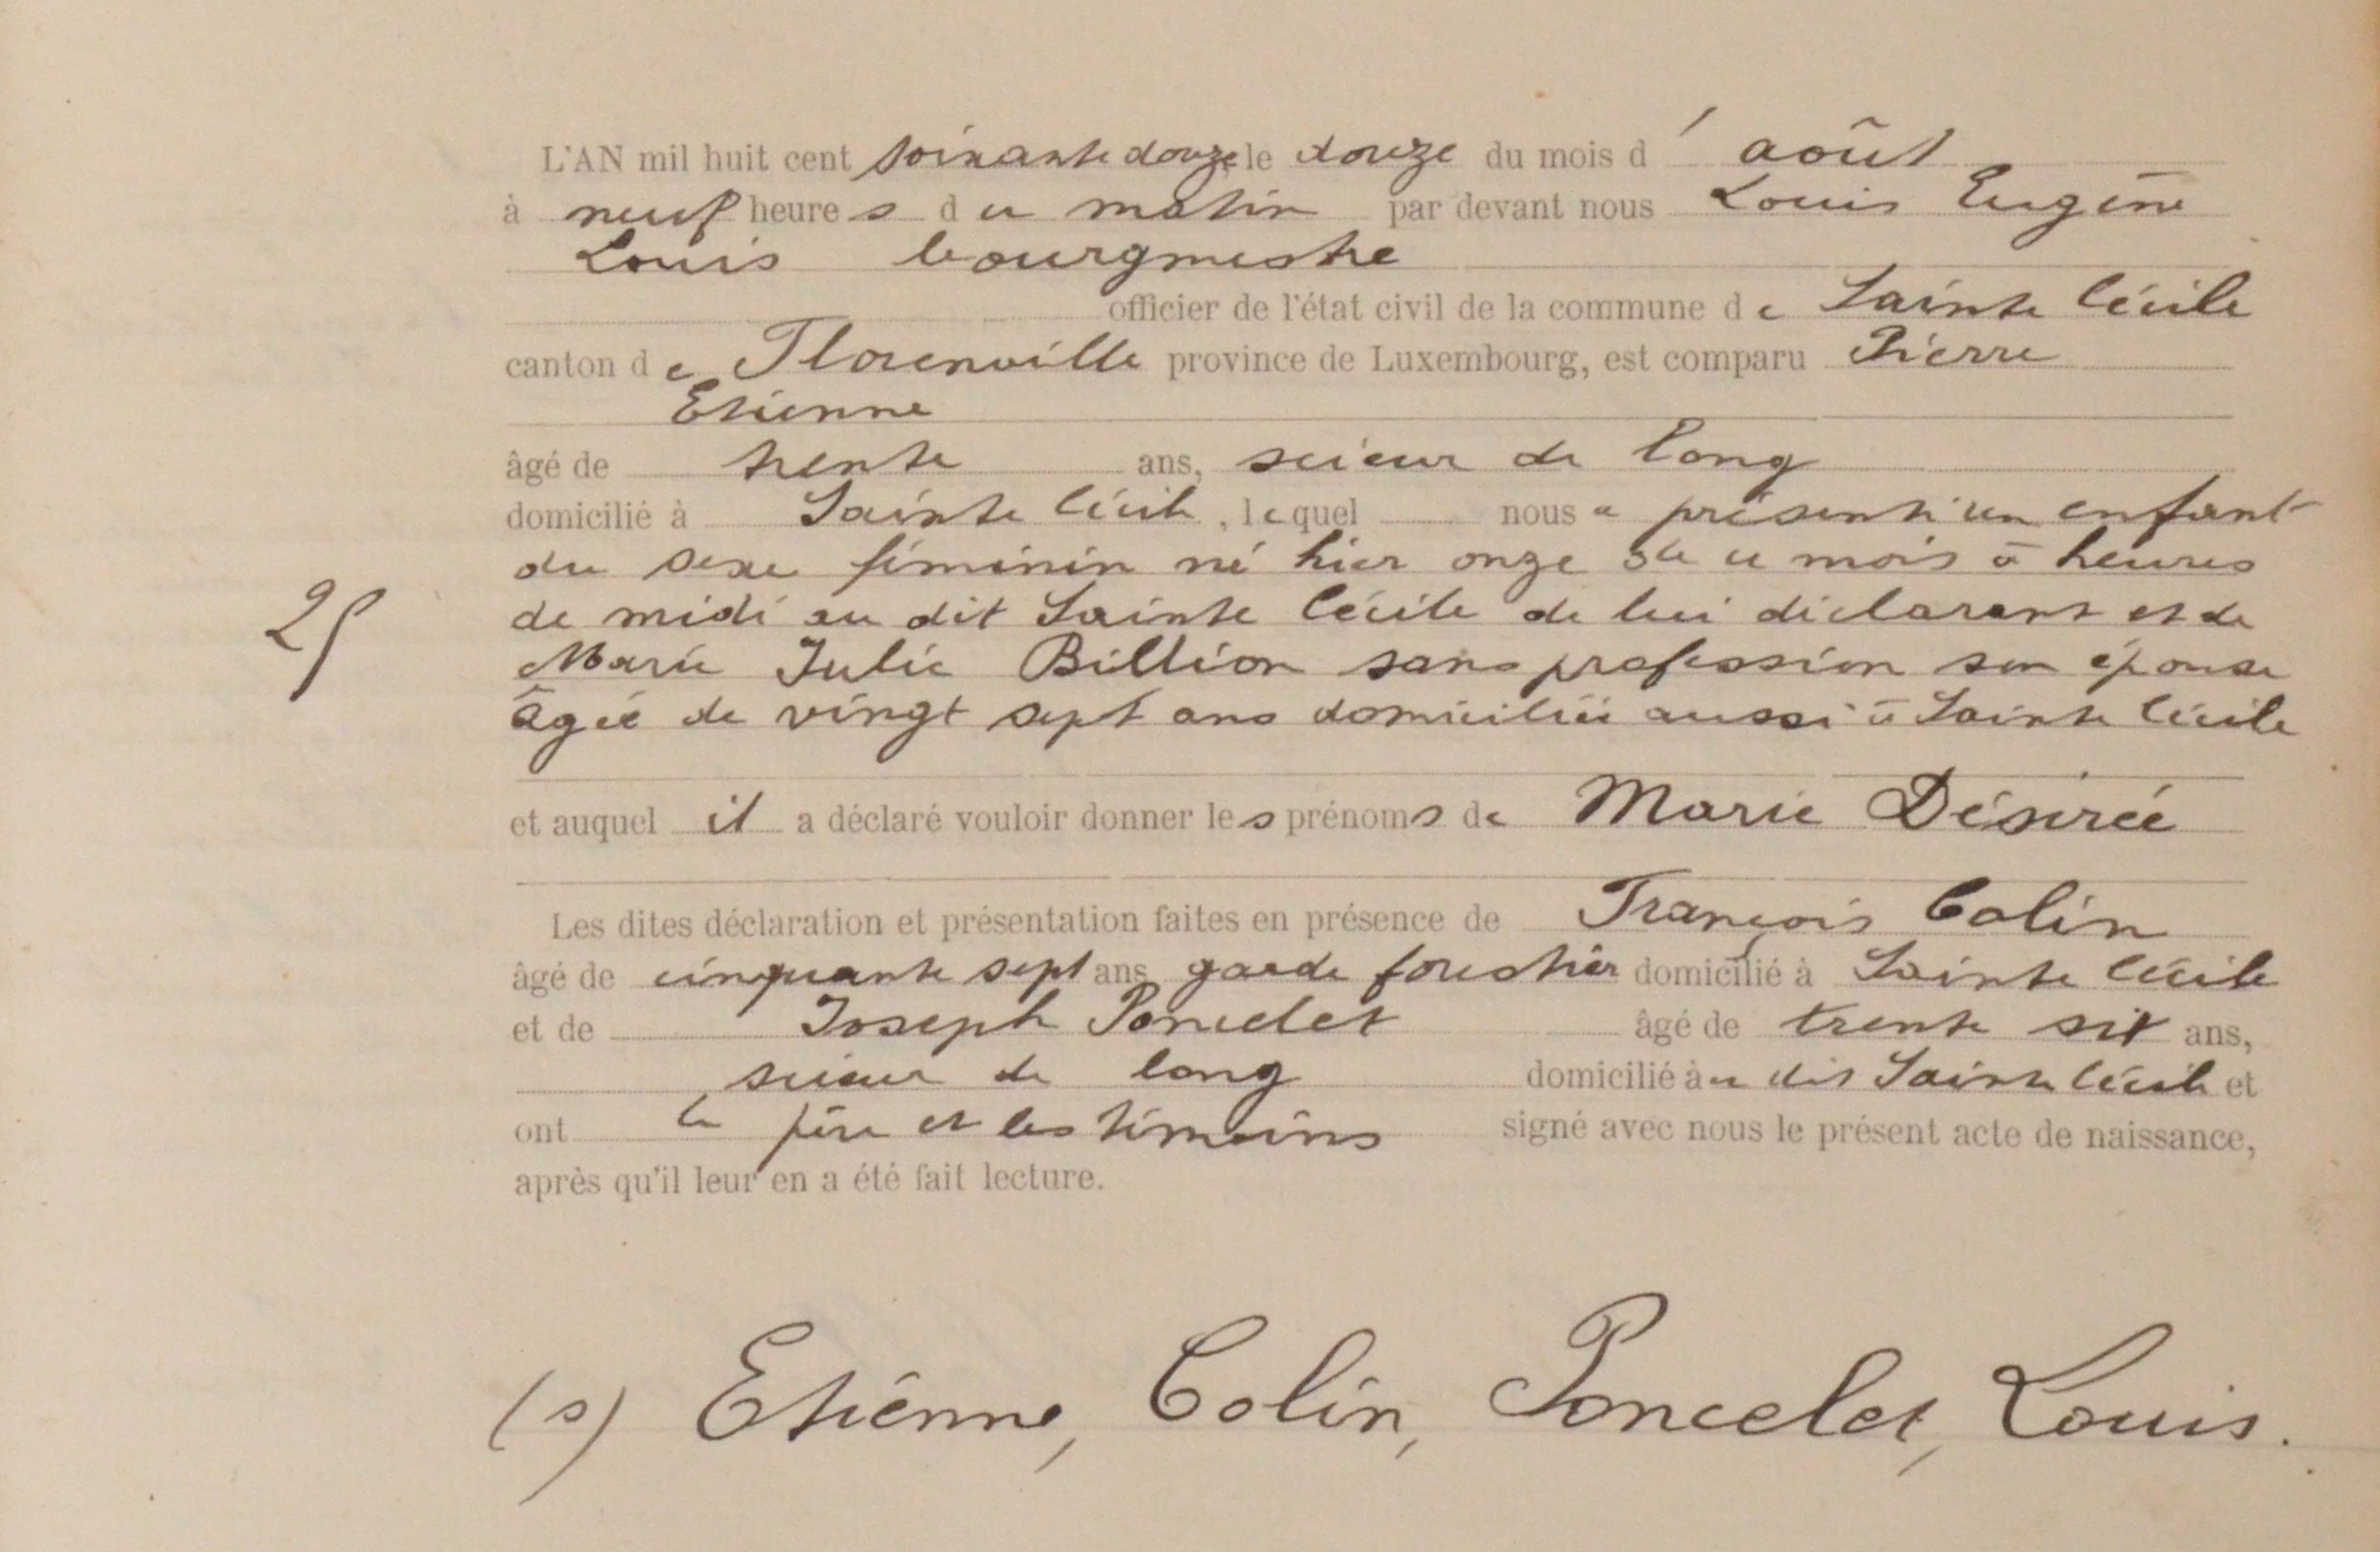 L'AN mil huit cent soixante douze le douze du mois d' août
à neuf heures du matin par devant nous Louis Eugène
Louis bourgmestre
officier de l'état civil de la commune de Sainte Cécile
canton de Florenville province de Luxembourg, est comparu Pierre
Etienne
âgé de trente ans, scieur de long
domicilié à Sainte Cécile, lequel nous a présenté un enfant
du sexe féminin né hier onze de ce mois à heures
de midi au dit Sainte Cécile de lui déclarant et de
Marie Julie Billion sans profession son épouse
âgée de vingt sept ans domiciliée aussi à Sainte Cécile
25
et auquel il a déclaré vouloir donner les prénoms de Marie Désirée
Les dites déclaration et présentation faites en présence de François Colin
âgé de cinquante sept ans garde forestier domicilié à Sainte Cécile
et de Joseph Poncelet âgé de trente six ans,
scieur de long domicilié au dit Sainte Cécile et
ont le père et les témoins signé avec nous le présent acte de naissance,
après qu'il leur en a été fait lecture.
(s) Etienne, Colin, Poncelet, Louis.